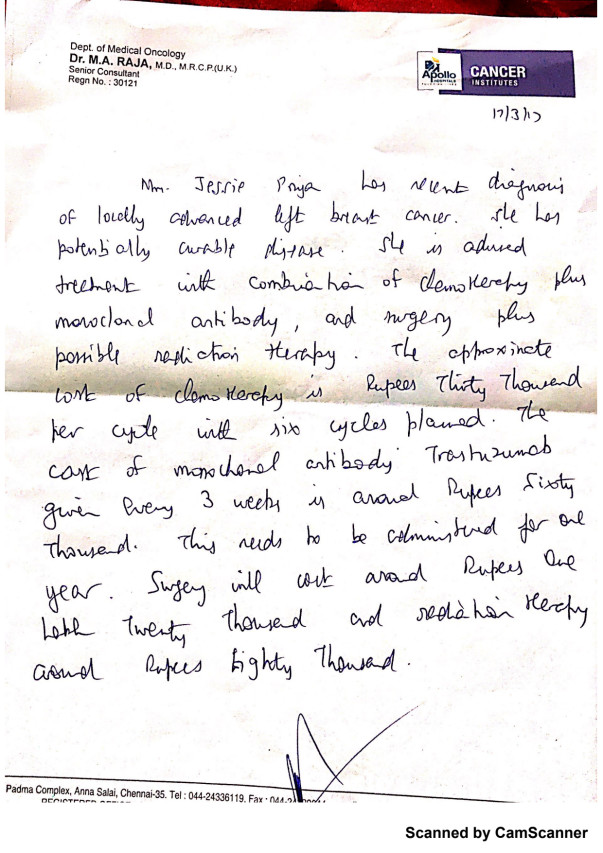 Dept. of Medical Oncology
Dr. M.A. RAJA, M.D., M.R.C.P.(U.K.)
Senior Consultant
Regn No. : 30121
Apollo
HOSPITALS
CANCER
INSTITUTES
17/3/17
Mrs. Jessie Priya has recent diagnosis
of locally advanced left breast cancer. She has
potentially curable disease. She is advised
treatment with combination of chemotherapy plus
monoclonal antibody, and surgery plus
possible radiation therapy. The approximate
cost of chemotherapy is Rupees Thirty Thousand
per cycle with six cycles planned. The
cost of monoclonal antibody Trastuzumab
given every 3 weeks is around Rupees Sixty
Thousand. This needs to be administered for one
year. Surgery will cost around Rupees One
Lakh Twenty Thousand and radiation therapy
around Rupees Eighty Thousand.
Padma Complex, Anna Salai, Chennai-35. Tel : 044-24336119. Fax : 044-24
Scanned by CamScanner